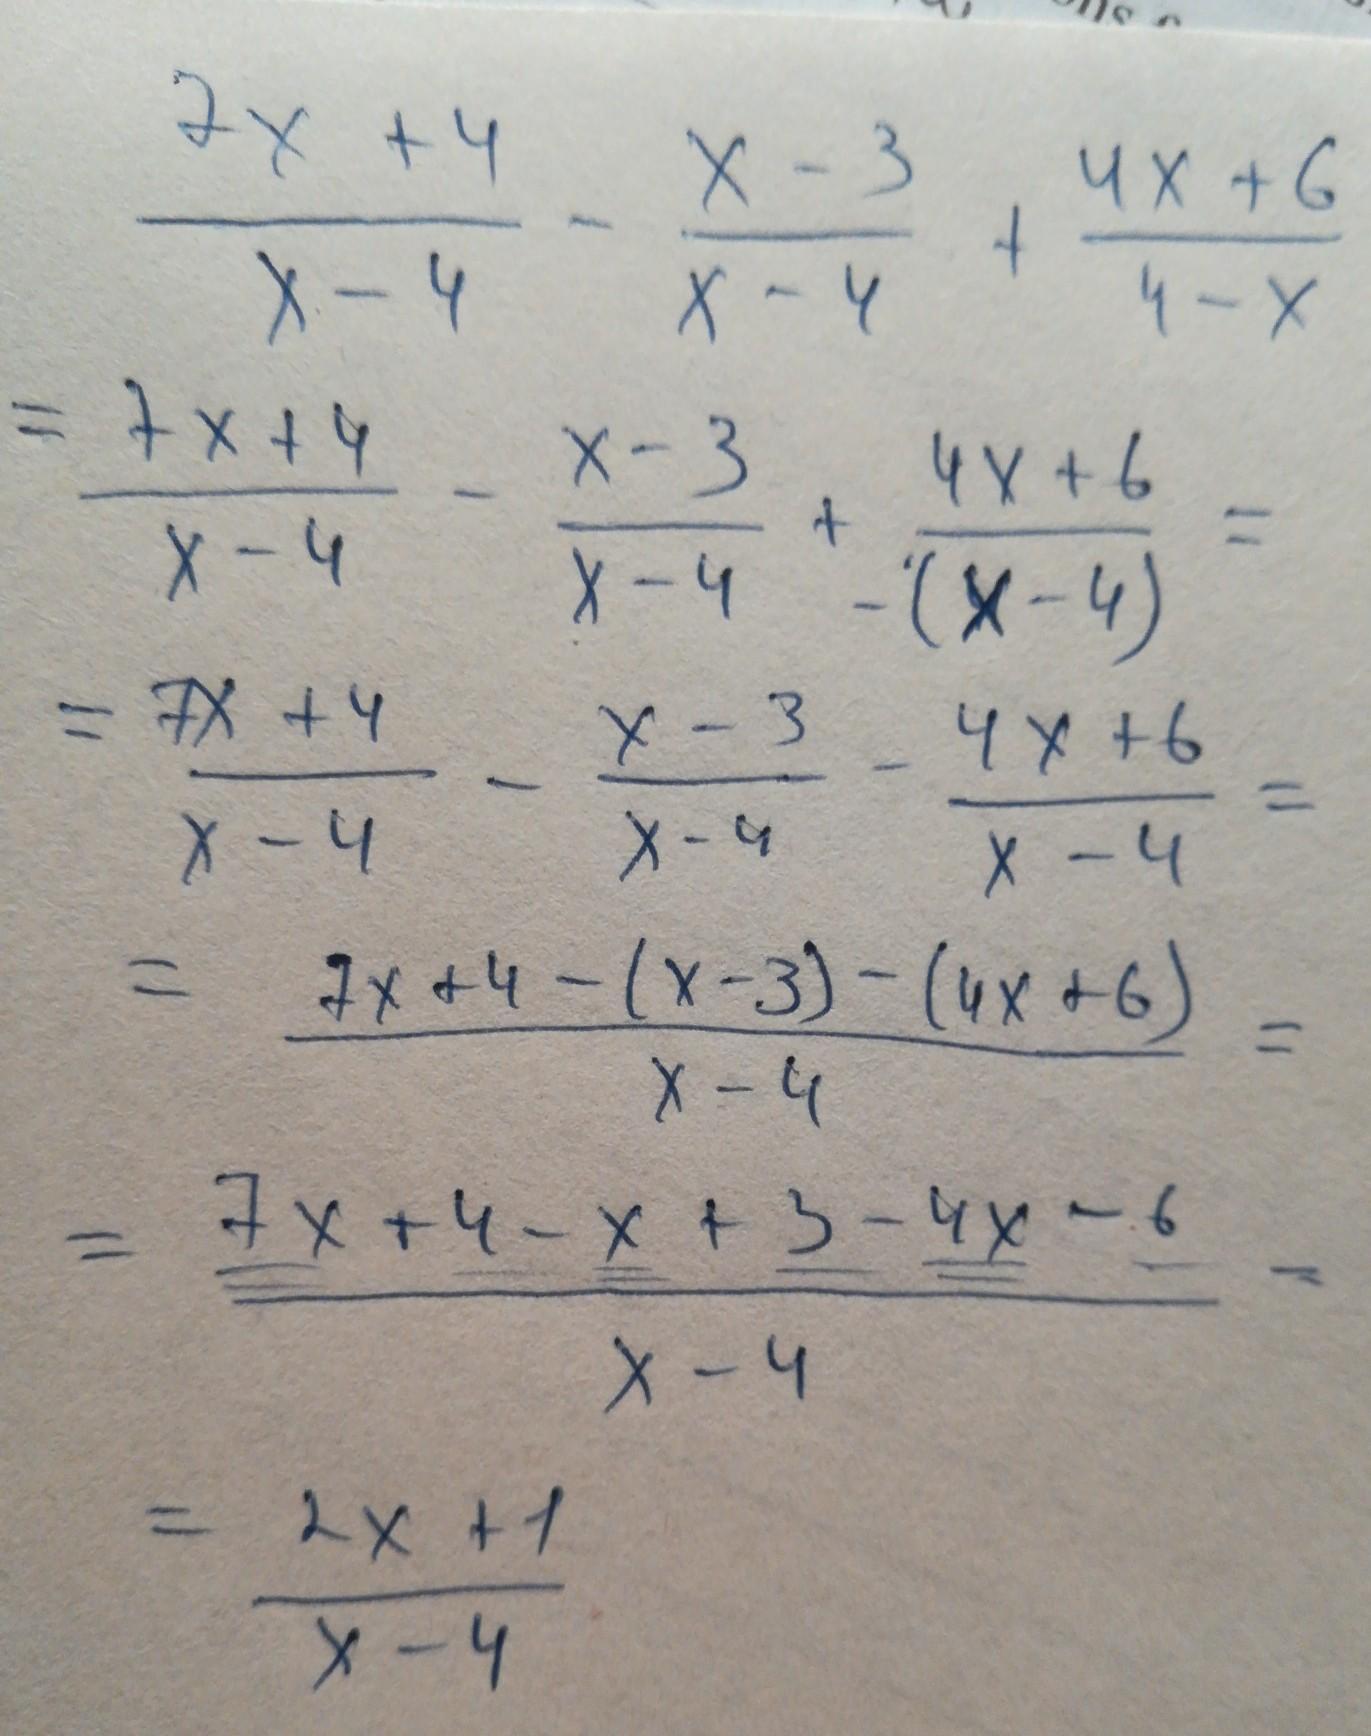 7x + 4 / x - 4 - x - 3 / x - 4 + 4x + 6 / 4 - x
= 7x + 4 / x - 4 - x - 3 / x - 4 + 4x + 6 / -(x - 4) =
= 7x + 4 / x - 4 - x - 3 / x - 4 - 4x + 6 / x - 4 =
= 7x + 4 - (x - 3) - (4x + 6) / x - 4 =
= 7x + 4 - x + 3 - 4x - 6 / x - 4 =
= 2x + 1 / x - 4